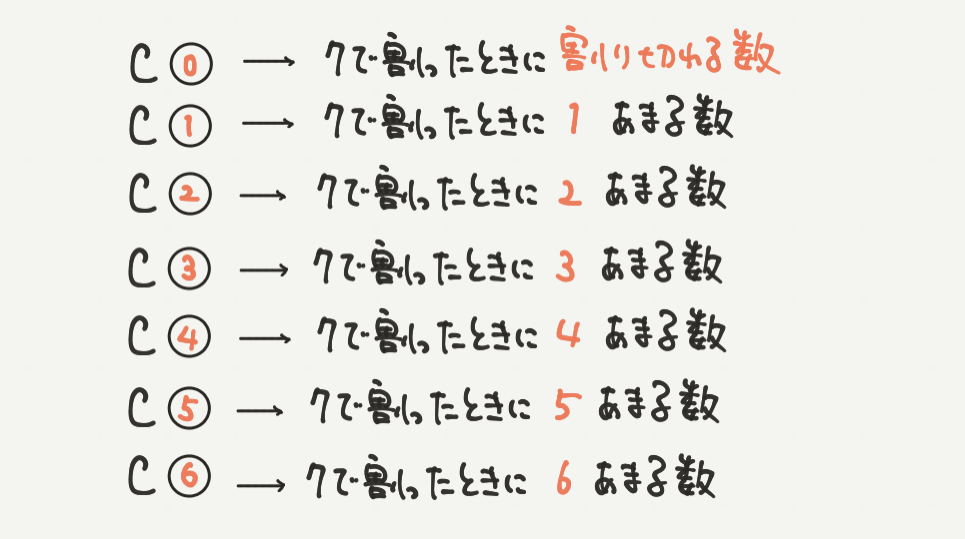 C⓪ → 7で割ったときに 割り切れる数
C① → 7で割ったときに 1 あまる数
C② → 7で割ったときに 2 あまる数
C③ → 7で割ったときに 3 あまる数
C④ → 7で割ったときに 4 あまる数
C⑤ → 7で割ったときに 5 あまる数
C⑥ → 7で割ったときに 6 あまる数